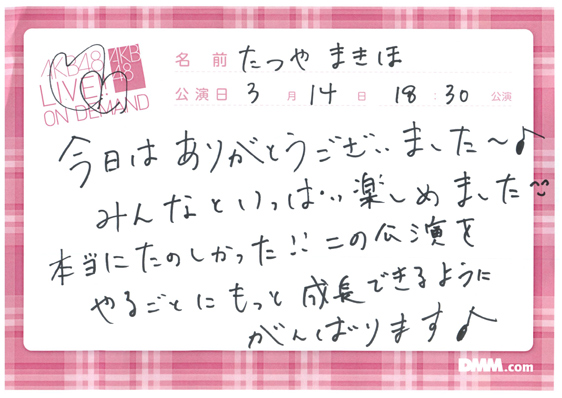 AKB48
LIVE!!
ON DEMAND
AKB
48
名 前 たつや まきほ
公演日 3 月 14 日 18 : 30 公演
今日は ありがとうございました〜♪
みんなといっぱい楽しめました
本当にたのしかった!! この公演を
やるごとに もっと 成長できるように
がんばります♪
DMM.com